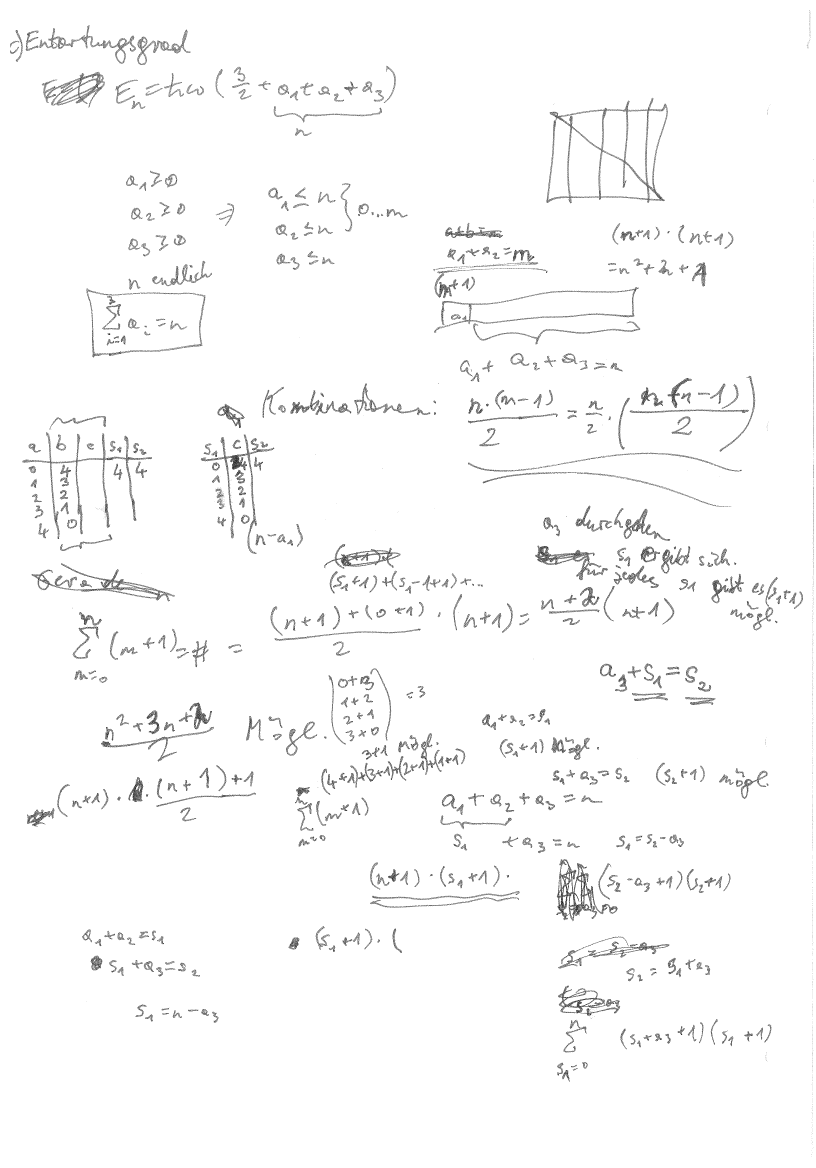 c) Entartungsgrad
E_n = ħω (3/2 + a_1 + a_2 + a_3)
n
a_1 ≥ 0
a_2 ≥ 0
a_3 ≥ 0
n endlich
⇒
a_1 ≤ n
a_2 ≤ n
a_3 ≤ n
} 0...m
∑_{i=1}^{3} a_i = n
a_1 + a_2 = m
(m+1)
a_1
a_1 + a_2 + a_3 = n
(n+1) · (n+1)
= n² + 2n + 1
Kombinationen: n·(n-1)/2 = n/2 · (n+(n-1)/2)
a b c S_1 S_2
0 4 4 4
1 3
2 2
3 1
4 0
S_1 c S_2
0 4 4
1 3
2 2
3 1
4 0
(n-a_1)
a_3 durchgehen
s_1 ergibt sich.
für jedes s_1 gibt es (s_1+1)
mögl.
Gerade n
(S_1+1) + (S_1-1+1) + ...
∑_{m=0}^{n} (m+1) = # = ((n+1) + (0+1))/2 · (n+1) = (n+2)/2 (n+1)
a_3 + S_1 = S_2
(n² + 3n + 2)/2 Mögl.
0+3
1+2
2+1
3+0
= 3
3+1 mögl.
a_1 + a_2 = s_1
(s_1+1) Mögl.
s_1 + a_3 = s_2 (s_2+1) mögl.
(n+1) · ((n+1)+1)/2
(4+1)+(3+1)+(2+1)+(1+1)
∑_{m=0}^{n} (m+1)
a_1 + a_2 + a_3 = n
s_1 + a_3 = n s_1 = s_2 - a_3
(n+1) · (s_1+1) ·
(s_2 - a_3 + 1)(s_2+1)
a_1 + a_2 = s_1
s_1 + a_3 = s_2
s_1 = n - a_3
(s_1+1) · (
s_1 = s_2 - a_3
s_2 = s_1 + a_3
∑_{s_1=0}^{n} (s_1 + a_3 + 1)(s_1 + 1)